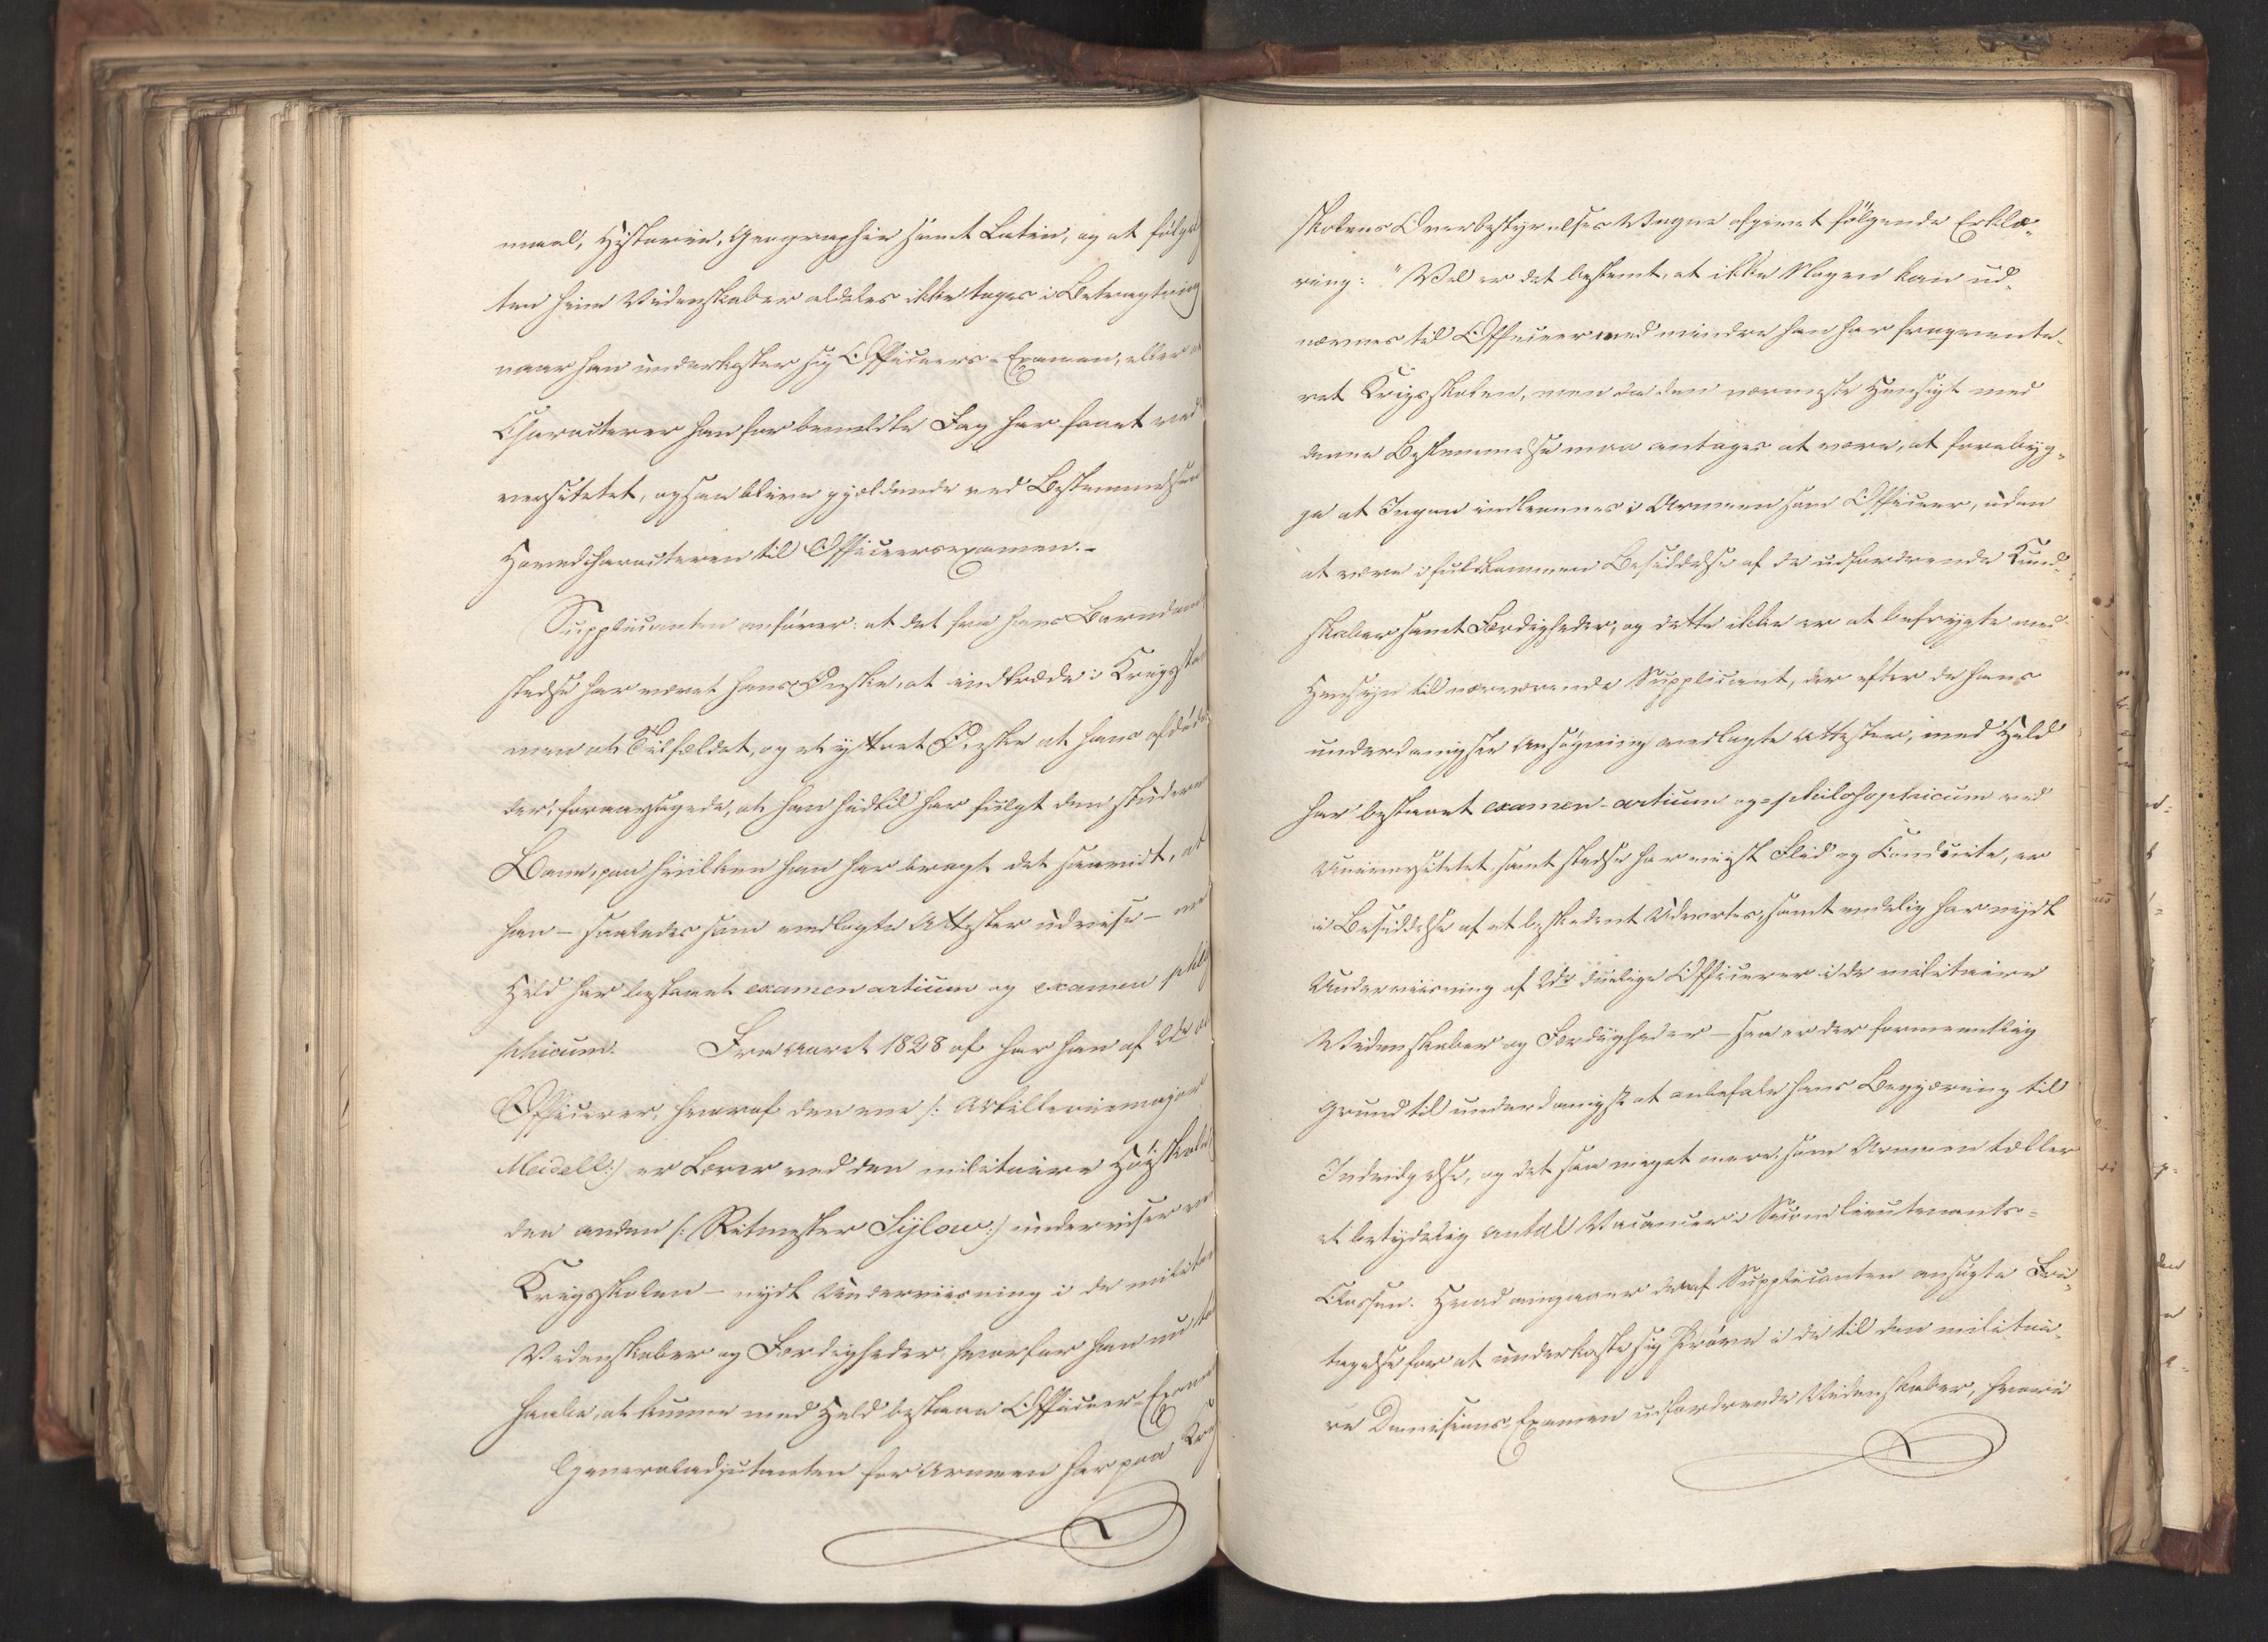 maal, Historie, Geographie samt Latin, og at følge
ten hine Videnskaber aldeles ikke tages i Betragtning
naar han underkaster sig Officeers-Examen, eller
Characterer han for bemeldte Fag har faaet ved
versitetet, ogsaa blive gjældende ved Bestemmelsen
Hovedcharacteren til Officeersexamen.-
Supplicanten anfører: at det fra hans Barndom
stedse har været hans Ønske, at indtræde i Krigsstan
men at Tilfældet, og et yttret Ønske at hans afdøde
der, foraarsagede, at han hidtil har fulgt den studeren
Bane, paa hvilken han har bragt det saavidt, at
han – saaledes som vedlagte Attester udvise – med
Held har bestaaet examen artium og examen philo
phicum. Fra Aaret 1828 af har han af 2de
Officerer, hvoraf den ene /: Artilleriemajor
Meidell :/ er Lærer ved den militaire Høiskole
den anden /: Ritmester Sylow :/ underviser ved
Krigsskolen – nydt Underviisning i de militai
Videnskaber og Færdigheder, hvorfor han nu tør
haabe, at kunne med Held bestaae Officeer-Examen
Generaladjutanten for Armeen har paa Krig
skolens Overbestyrelses Vegne afgivet følgende Erklæ-
ring: "Vel er det bestemt, at ikke Nogen kan ud-
nævnes til Officeer med mindre han har frequente-
ret Krigsskolen, men da den nærmeste Hensigt med
denne Bestemmelse maa antages at være, at forebyg-
ge at Ingen indkommer i Armeen som Officeer, uden
at være i fuldkommen Besiddelse af de udfordrende Kund-
skaber samt Færdigheder, og dette ikke er at befrygte med
Hensyn til nærværende Supplicant, der efter de hans
underdanigste Ansøgning vedlagte Attester, med Held
har bestaaet examen-artium og-philosophicum ved
Universitetet, samt stedse har viist Flid og Conduite, er
i Besiddelse af et beskedent Udvortes, samt endelig har nydt
Underviisning af 2de duelige Officerer i de militaire
Videnskaber og Færdigheder – saa er der formeentlig
Grund til underdanigst at anbefale hans Begjæring til
Indvilgelse, og det saa meget mere, som Armeen tæller
et betydelig Antal Vacancer i Secondlieutenants-
Classen. Hvad angaaer den af Supplicanten ansøgte Fri-
tagelse for at underkaste sig Prøve i de til den militai-
re Dimissions Examen udfordrende Videnskaber, hvori